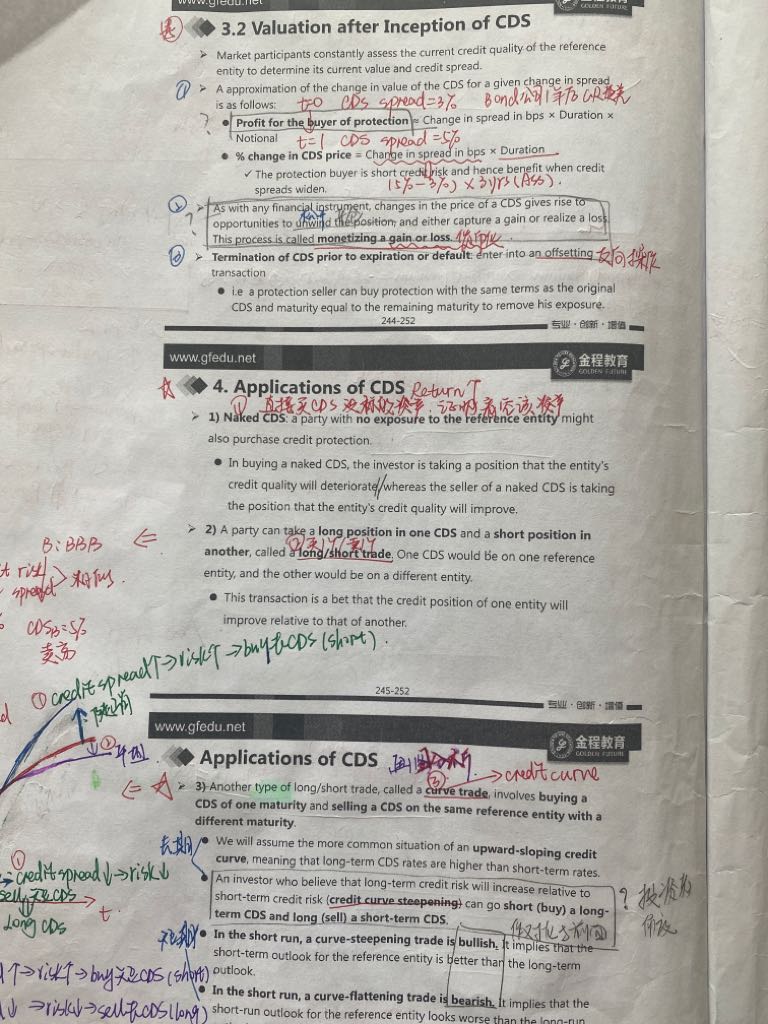 www.gfedu.net
GOLDEN FUTURE
3.2 Valuation after Inception of CDS
➢ Market participants constantly assess the current credit quality of the reference
entity to determine its current value and credit spread.
➢ A approximation of the change in value of the CDS for a given change in spread
is as follows: t=0 CDS spread=3%
● Profit for the buyer of protection ≈ Change in spread in bps × Duration ×
Notional t=1 CDS spread=5%
● % change in CDS price = Change in spread in bps × Duration
✓ The protection buyer is short credit risk and hence benefit when credit
spreads widen. (5%-3%) × 3yrs (Ass).
➢ As with any financial instrument, changes in the price of a CDS gives rise to
opportunities to unwind the position, and either capture a gain or realize a loss.
This process is called monetizing a gain or loss.
➢ Termination of CDS prior to expiration or default: enter into an offsetting
transaction
● i.e a protection seller can buy protection with the same terms as the original
CDS and maturity equal to the remaining maturity to remove his exposure.
244-252
专业·创新·增值
www.gfedu.net
金程教育
GOLDEN FUTURE
4. Applications of CDS Return↑
➢ 1) Naked CDS: a party with no exposure to the reference entity might
also purchase credit protection.
● In buying a naked CDS, the investor is taking a position that the entity's
credit quality will deteriorate//whereas the seller of a naked CDS is taking
the position that the entity's credit quality will improve.
➢ 2) A party can take a long position in one CDS and a short position in
another, called a long/short trade. One CDS would be on one reference
entity, and the other would be on a different entity.
● This transaction is a bet that the credit position of one entity will
improve relative to that of another.
B: BBB
risk
spread
CDS_B=5%
① credit spread↑→risk↑→buy CDS (short).
245-252
专业·创新·增值
www.gfedu.net
金程教育
GOLDEN FUTURE
Applications of CDS
③ → credit curve
➢ 3) Another type of long/short trade, called a curve trade, involves buying a
CDS of one maturity and selling a CDS on the same reference entity with a
different maturity.
● We will assume the more common situation of an upward-sloping credit
curve, meaning that long-term CDS rates are higher than short-term rates.
● An investor who believe that long-term credit risk will increase relative to
short-term credit risk (credit curve steepening) can go short (buy) a long-
term CDS and long (sell) a short-term CDS.
● In the short run, a curve-steepening trade is bullish. It implies that the
short-term outlook for the reference entity is better than the long-term
outlook.
● In the short run, a curve-flattening trade is bearish. It implies that the
short-run outlook for the reference entity looks worse than the long-run
① credit spread↓→risk↓
Long CDS
t.
↑→risk↑→buy CDS (short)
↓→risk↓→sell CDS (long)